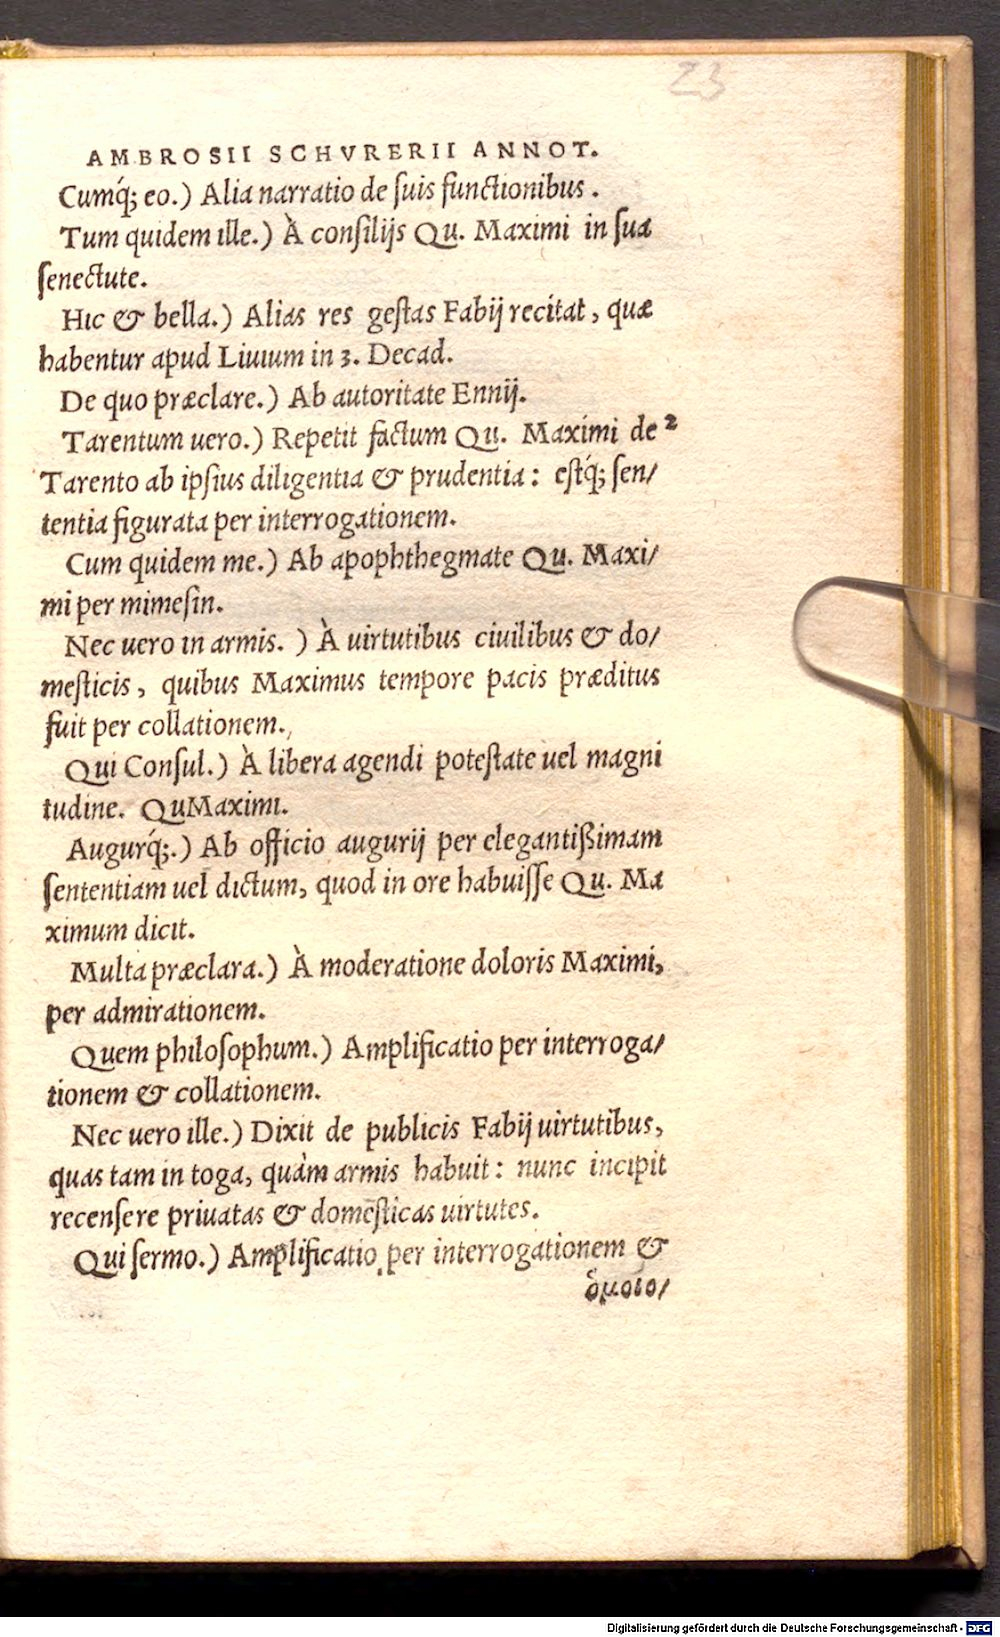 23
AMBROSII SCHVRERII ANNOT.
Cumq́; eo.) Alia narratio de ſuis functionibus.
Tum quidem ille.) À conſilijs Qu. Maximi in ſua
ſenectute.
Hic & bella.) Alias res geſtas Fabij recitat, quæ
habentur apud Liuium in 3. Decad.
De quo præclare.) Ab autoritate Ennij.
Tarentum uero.) Repetit factum Qu. Maximi de 2
Tarento ab ipſius diligentia & prudentia: eſtq́; ſen/
tentia figurata per interrogationem.
Cum quidem me.) Ab apophthegmate Qu. Maxi/
mi per mimeſin.
Nec uero in armis.) À uirtutibus ciuilibus & do/
meſticis, quibus Maximus tempore pacis præditus
fuit per collationem.
Qui Conſul.) À libera agendi poteſtate uel magni
tudine. QuMaximi.
Augurq́;.) Ab officio augurij per elegantißimam
ſententiam uel dictum, quod in ore habuiſſe Qu. Ma
ximum dicit.
Multa præclara.) À moderatione doloris Maximi,
per admirationem.
Quem philoſophum.) Amplificatio per interroga/
tionem & collationem.
Nec uero ille.) Dixit de publicis Fabij uirtutibus,
quas tam in toga, quàm armis habuit: nunc incipit
recenſere priuatas & domeſticas uirtutes.
Qui ſermo.) Amplificatio per interrogationem &
ὁμοιο/
Digitalisierung gefördert durch die Deutsche Forschungsgemeinschaft - DFG